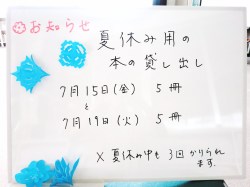 お知らせ
夏休み用の
本の貸し出し
7月15日(金) 5冊
と
7月19日(火) 5冊
× 夏休み中も 3回 かりられ
ます。